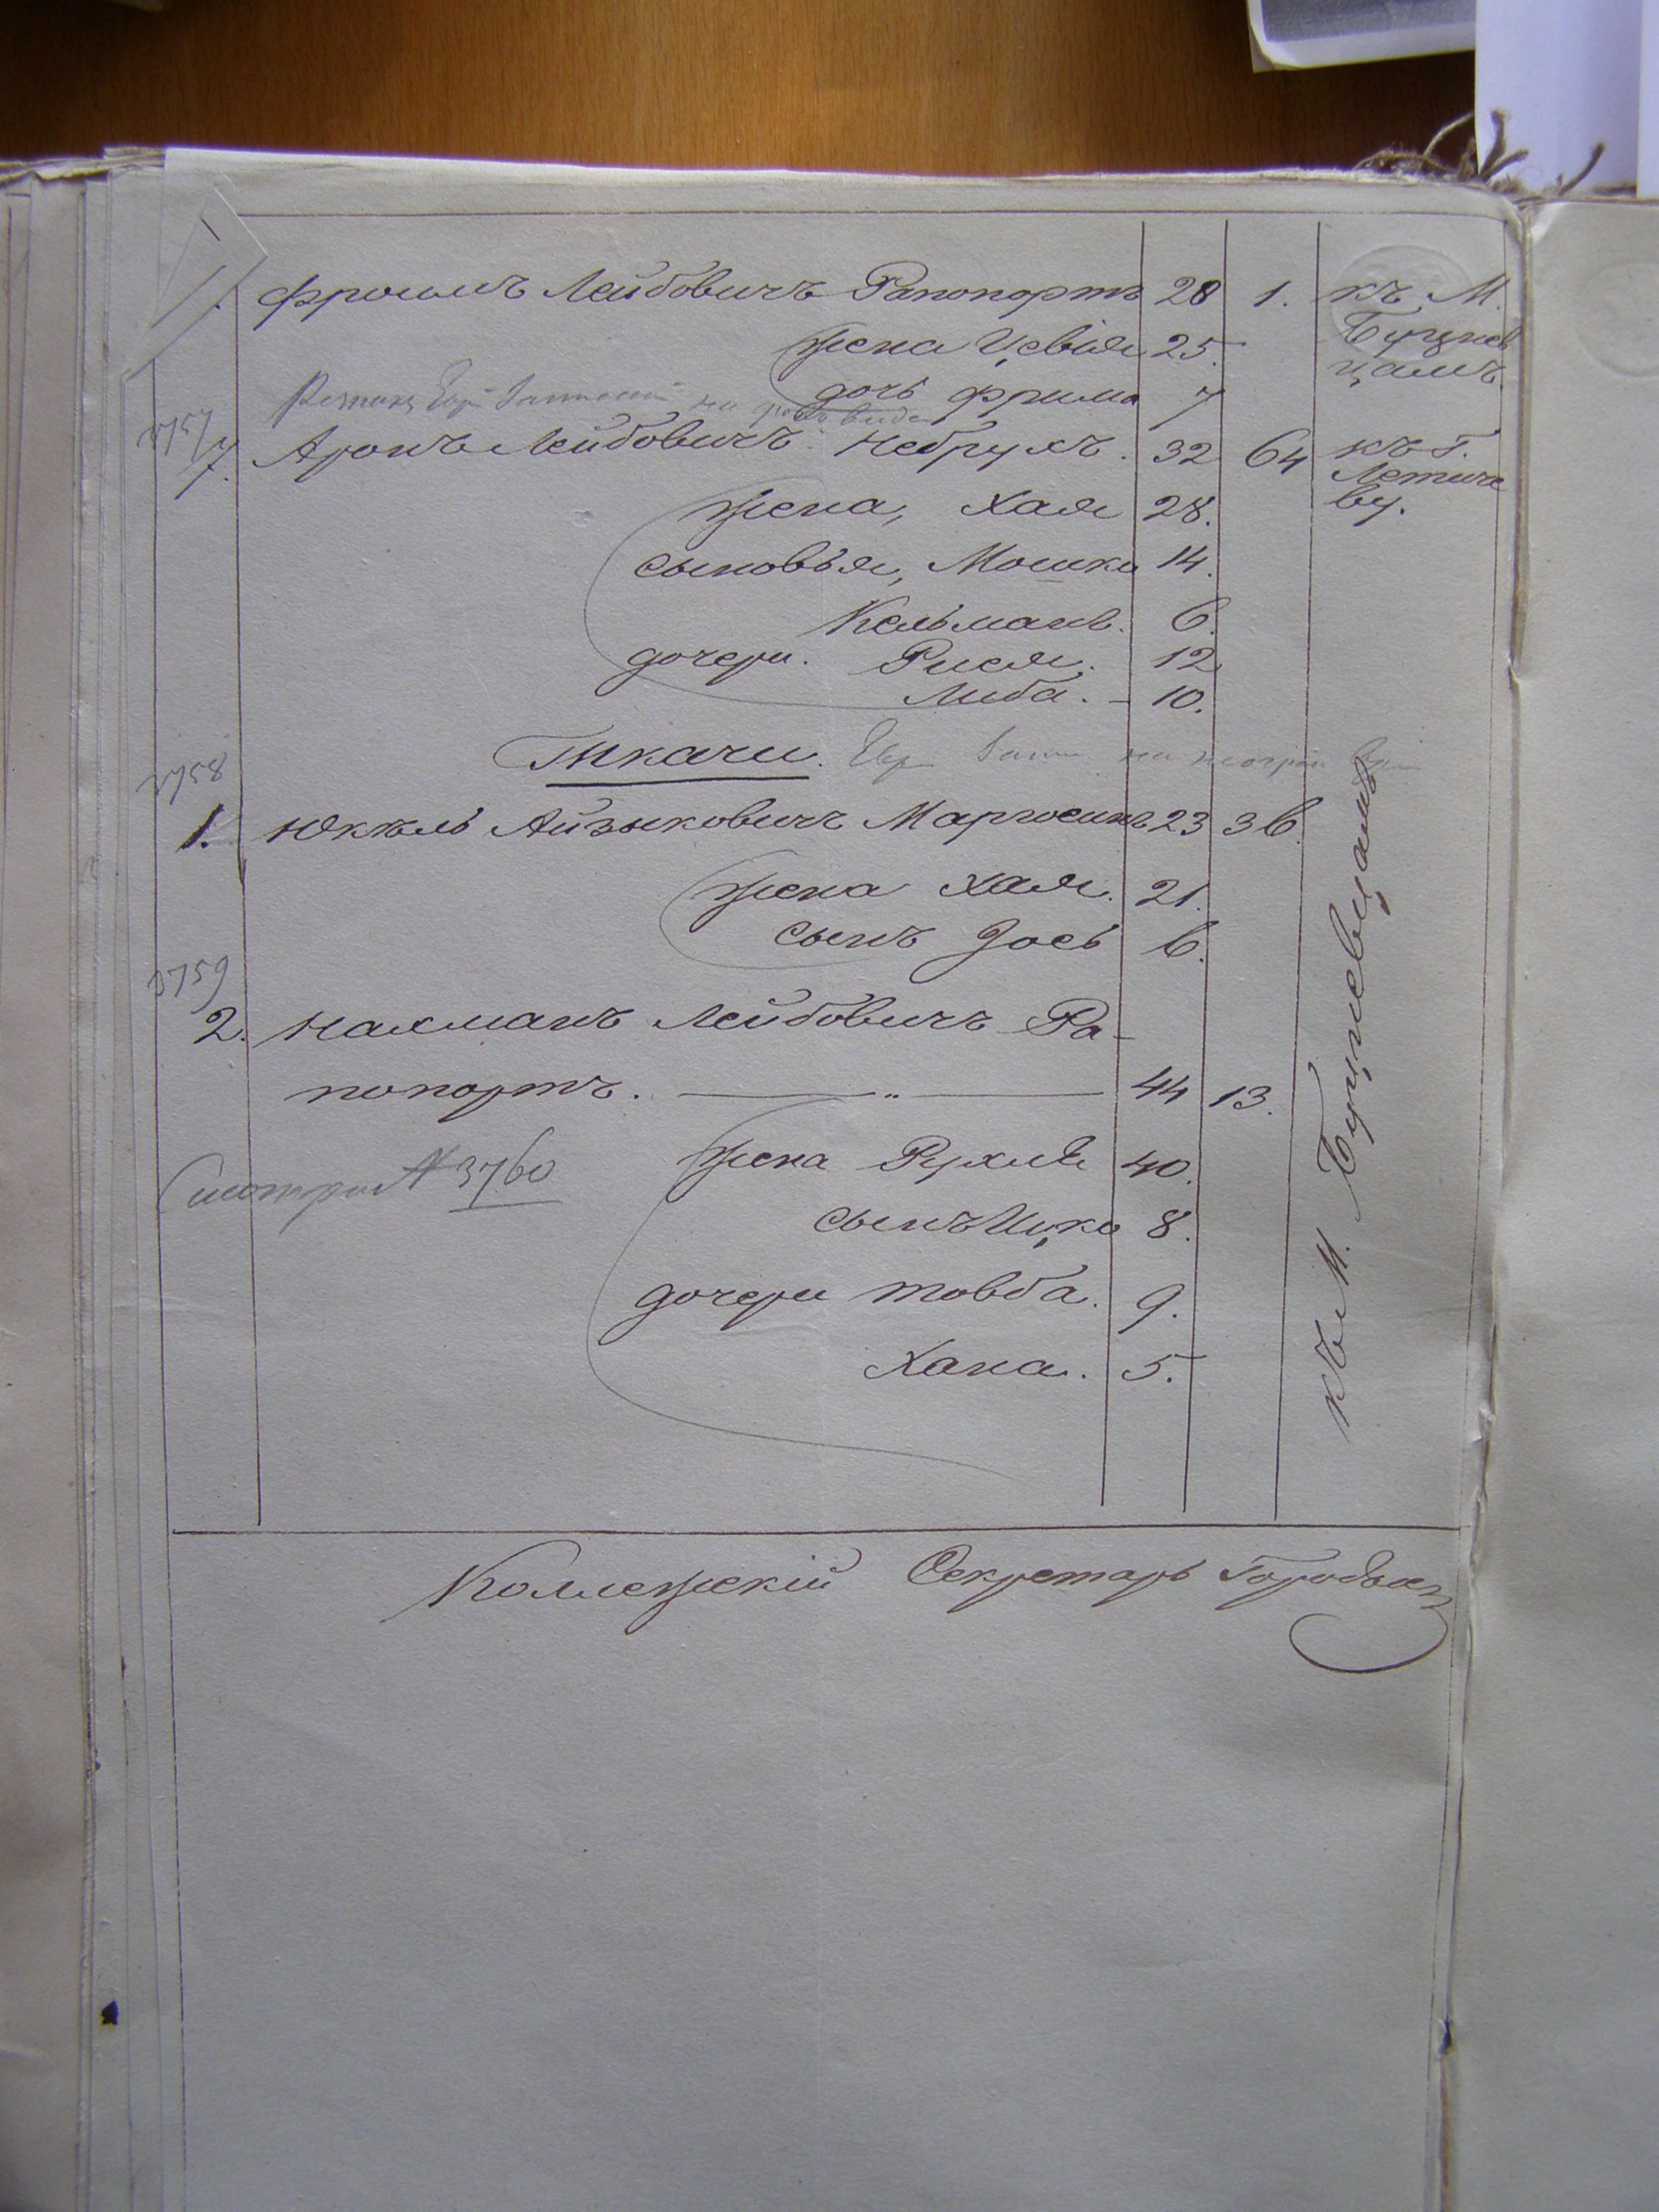 Фроимъ Лейбовичъ Рапопортъ 28 1. къ М.
жена Цевія 25. Буцнев
дочь Фрима 7 цамъ.
3757
7. Аронъ Лейбовичъ Небрухъ. 32 64 къ г.
Летиче
жена, Хая 28. ву.
сыновья, Мошко 14.
Кельманъ. 6.
дочери. Рися. 12
Либа. - 10.
Ткачи.
3758
1. Юкель Айзыковичъ Маргосинъ 23 36.
жена Хая. 21.
сынъ Іось 6.
3759
2. Нахманъ Лейбовичъ Ра-
попортъ. — „ — 44 13.
жена Рухля 40.
Смотри № 3760
сынъ Ицко 8.
дочери Товба. 9.
Хана. 5.
къ М. Буцневцамъ
Коллежскій Секретарь